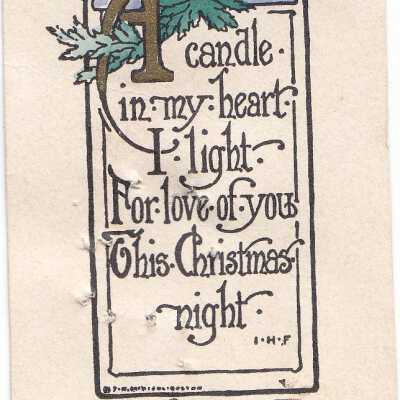 A candle
in my heart
I light
For love of you
This Christmas
night
I·H·F